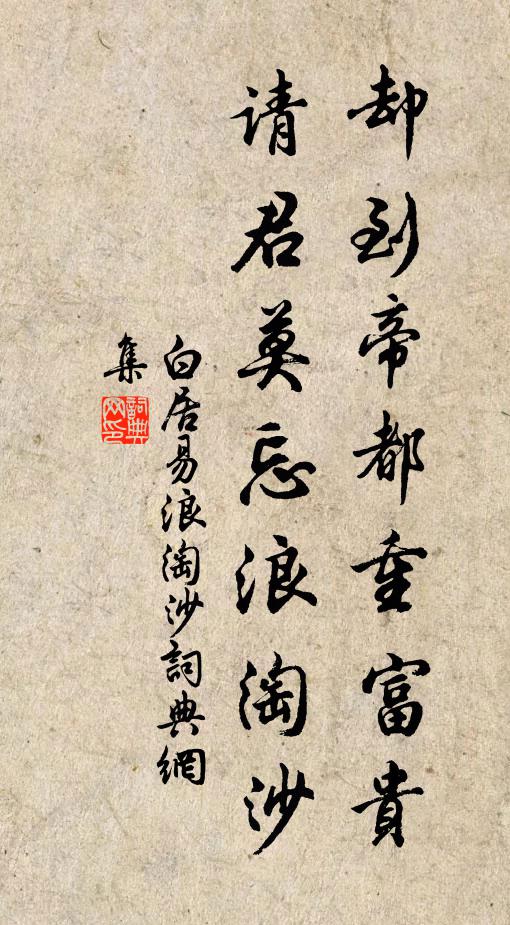 却到帝都重富貴
请君莫忘浪淘沙
白居易浪淘沙詞典網
集
詞典
网印